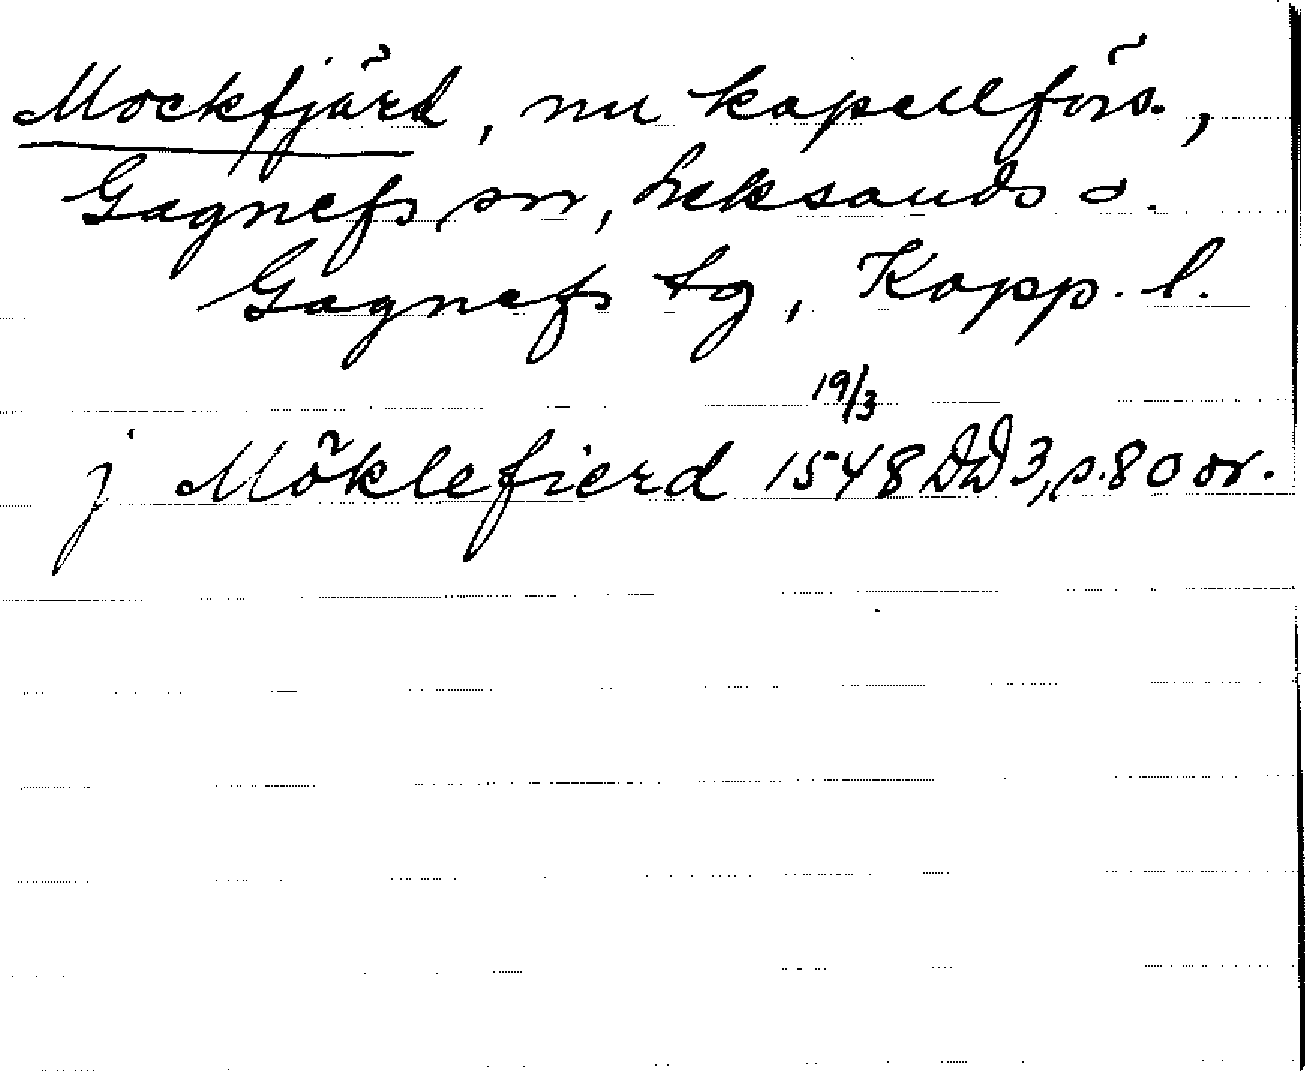 Mockfjärd, nu kapellförs.,
Gagnefs sn, Leksands o.
Gagnefs tg, Kopp. l.
19/3
j Möklefierd 1548 DD 3, s. 80 or.